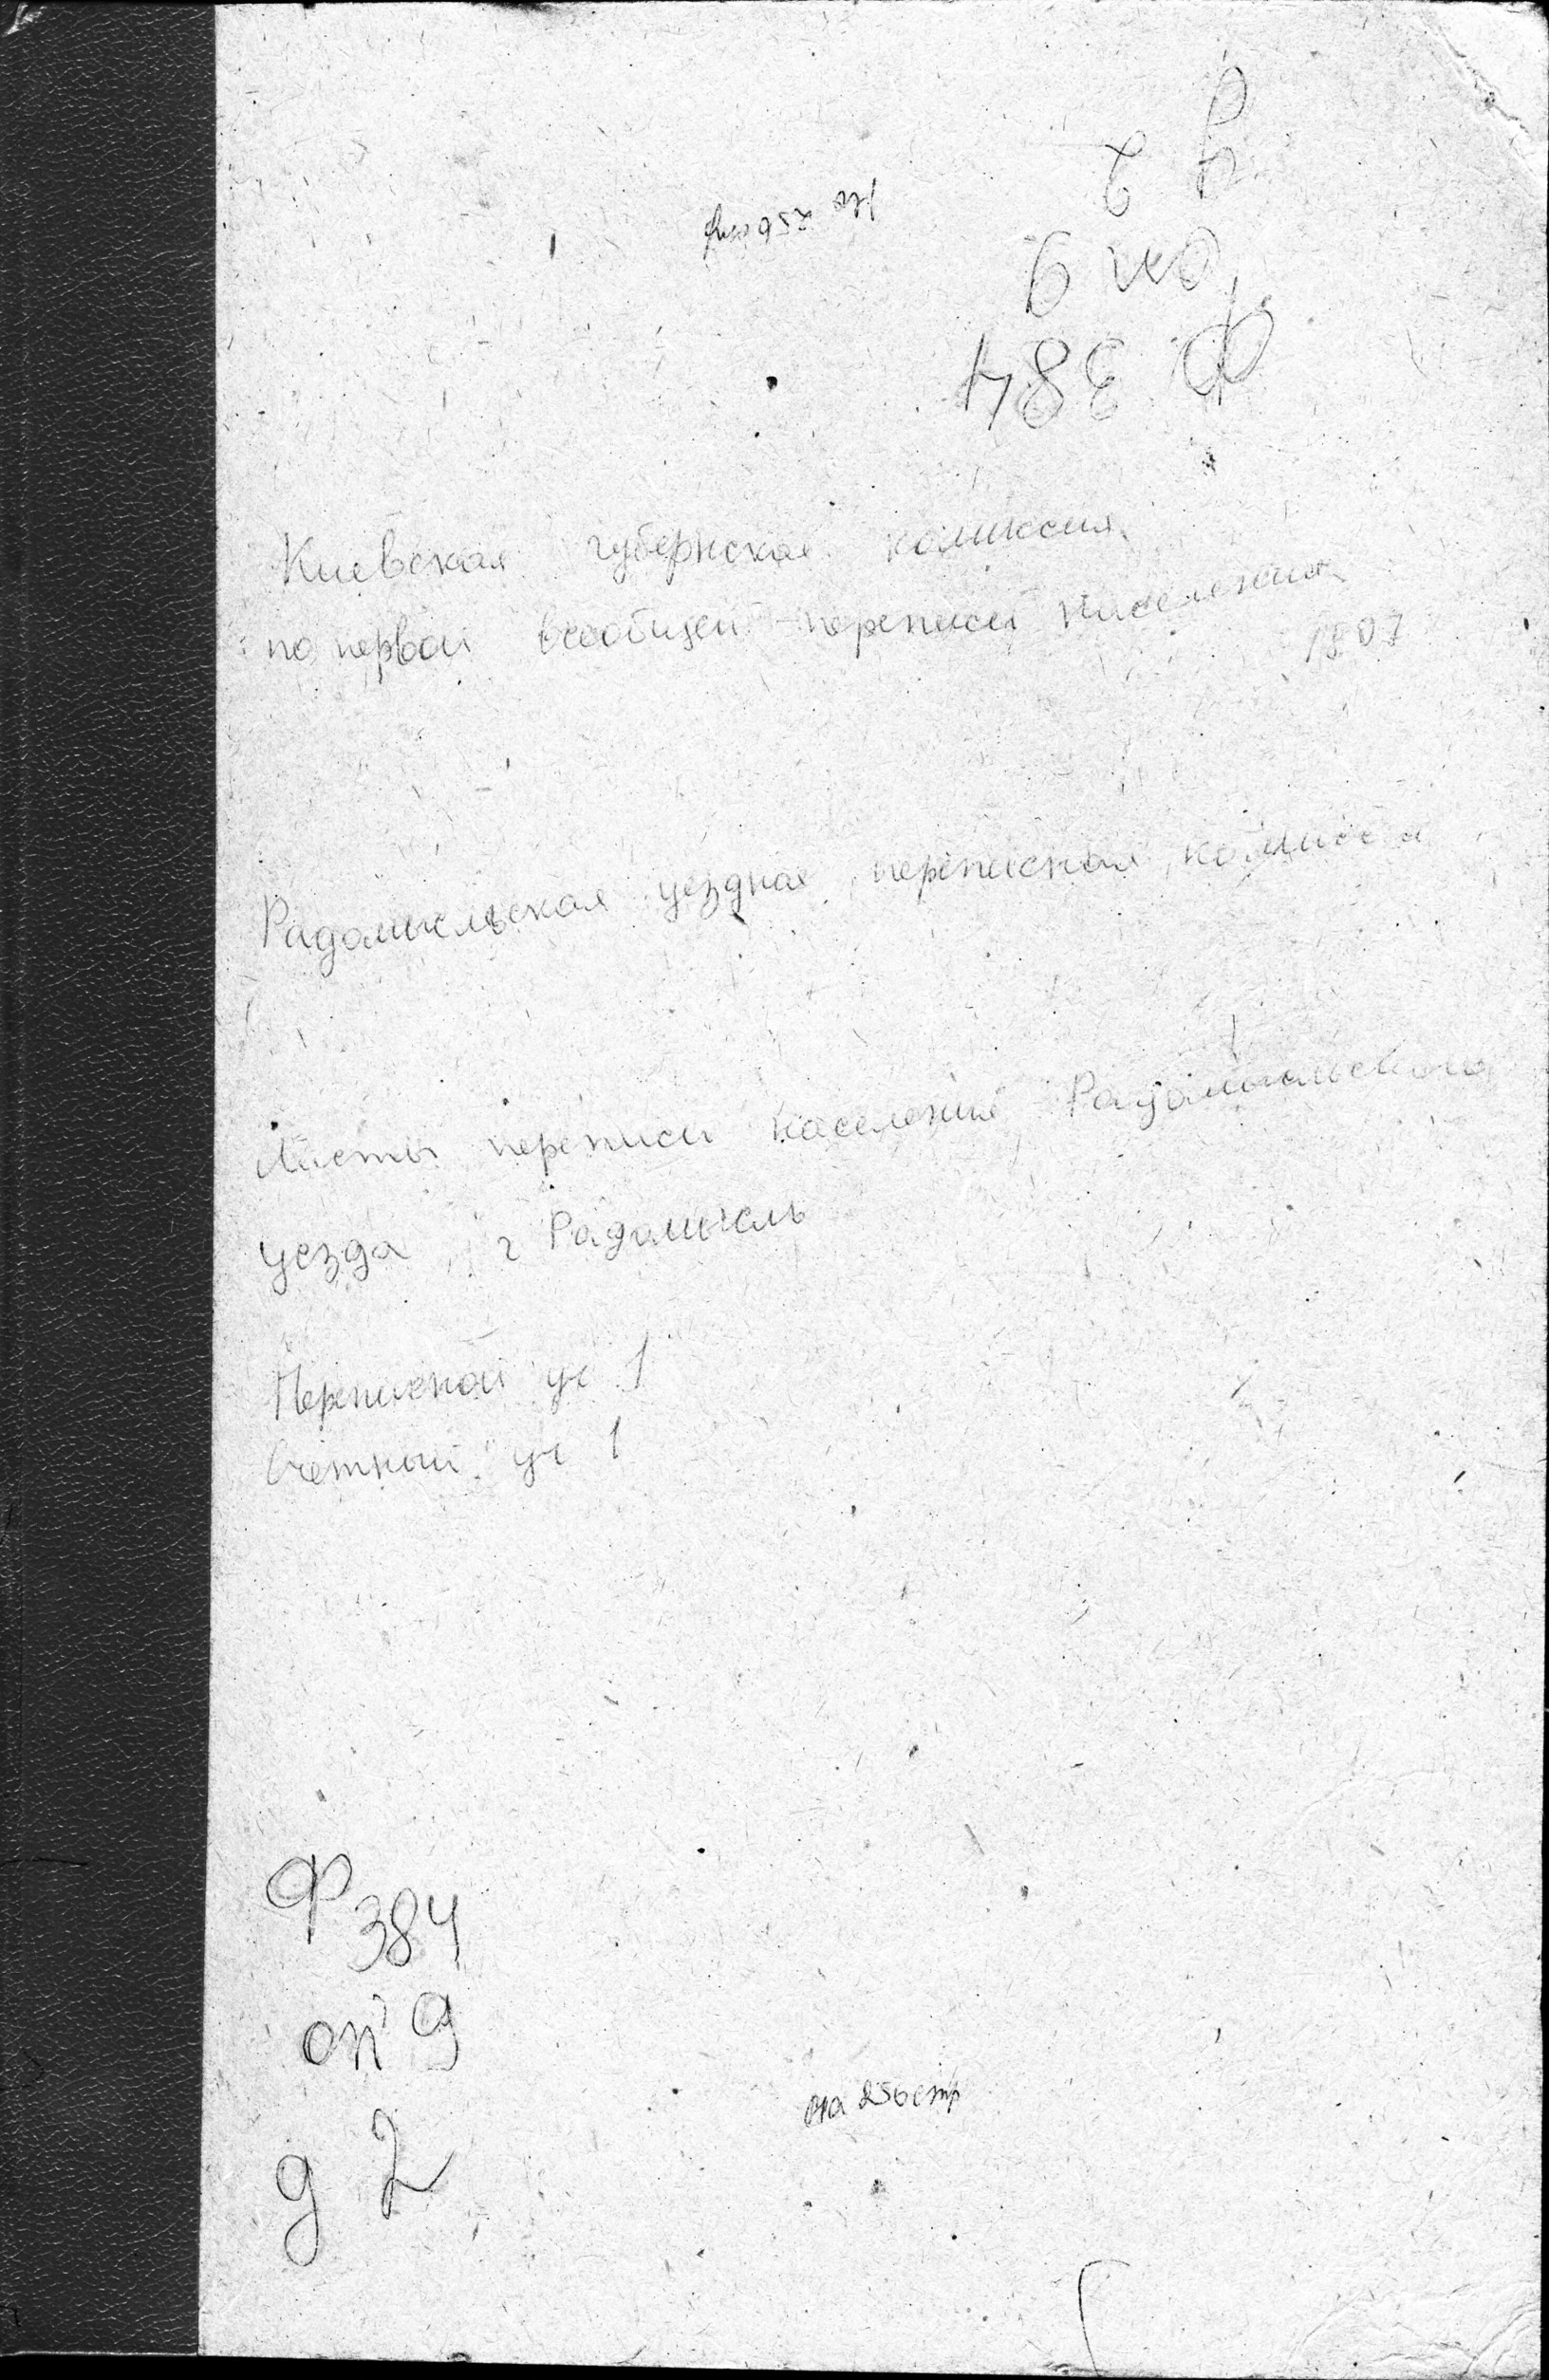 д 2
оп 9
Ф 384
На 256 стр
Киевская губернская комиссия
по первой всеобщей переписи населения
1897
Радомысльская уездная переписная комиссия
Листы переписи населения Радомысльского
уезда г Радомысль
Переписной уч 1
Счетный уч 1
Ф 384
оп 9
д 2
на 256 стр